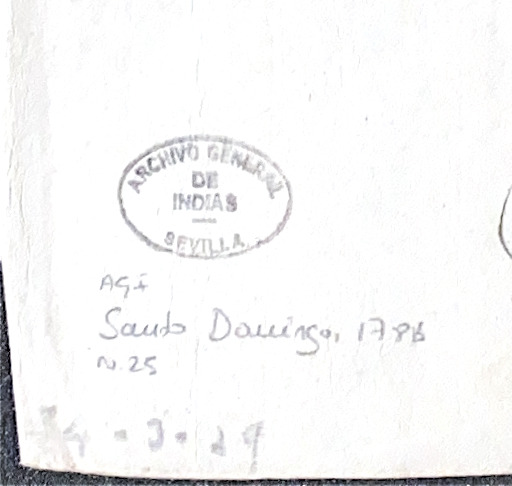 ARCHIVO GENERAL
DE
INDIAS
SEVILLA
AGI
Santo Domingo, 178B
N.25